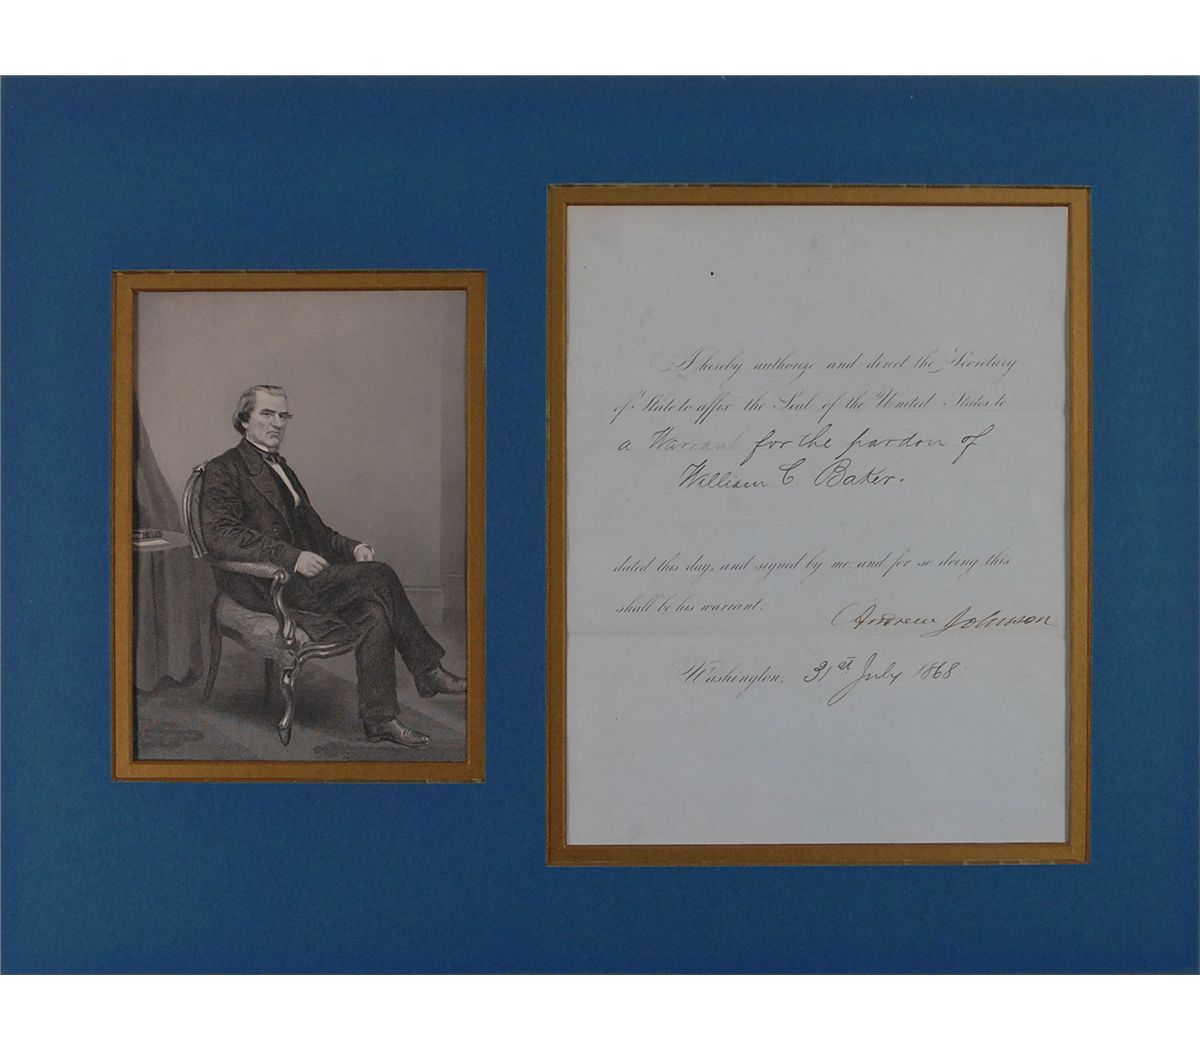 I hereby authorize and direct the Secretary
of State to affix the Seal of the United States to
a Warrant for the pardon of
William C. Baker.
dated this day, and signed by me and for so doing this
shall be his warrant.
Andrew Johnson
Washington, 31st July 1868.